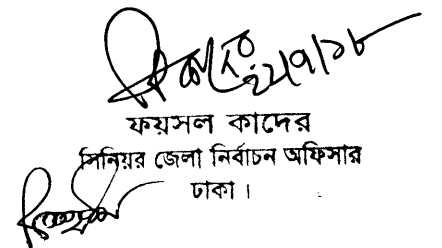 ২২/৭/১৮
ফয়সল কাদের
সিনিয়র জেলা নির্বাচন অফিসার
ঢাকা।